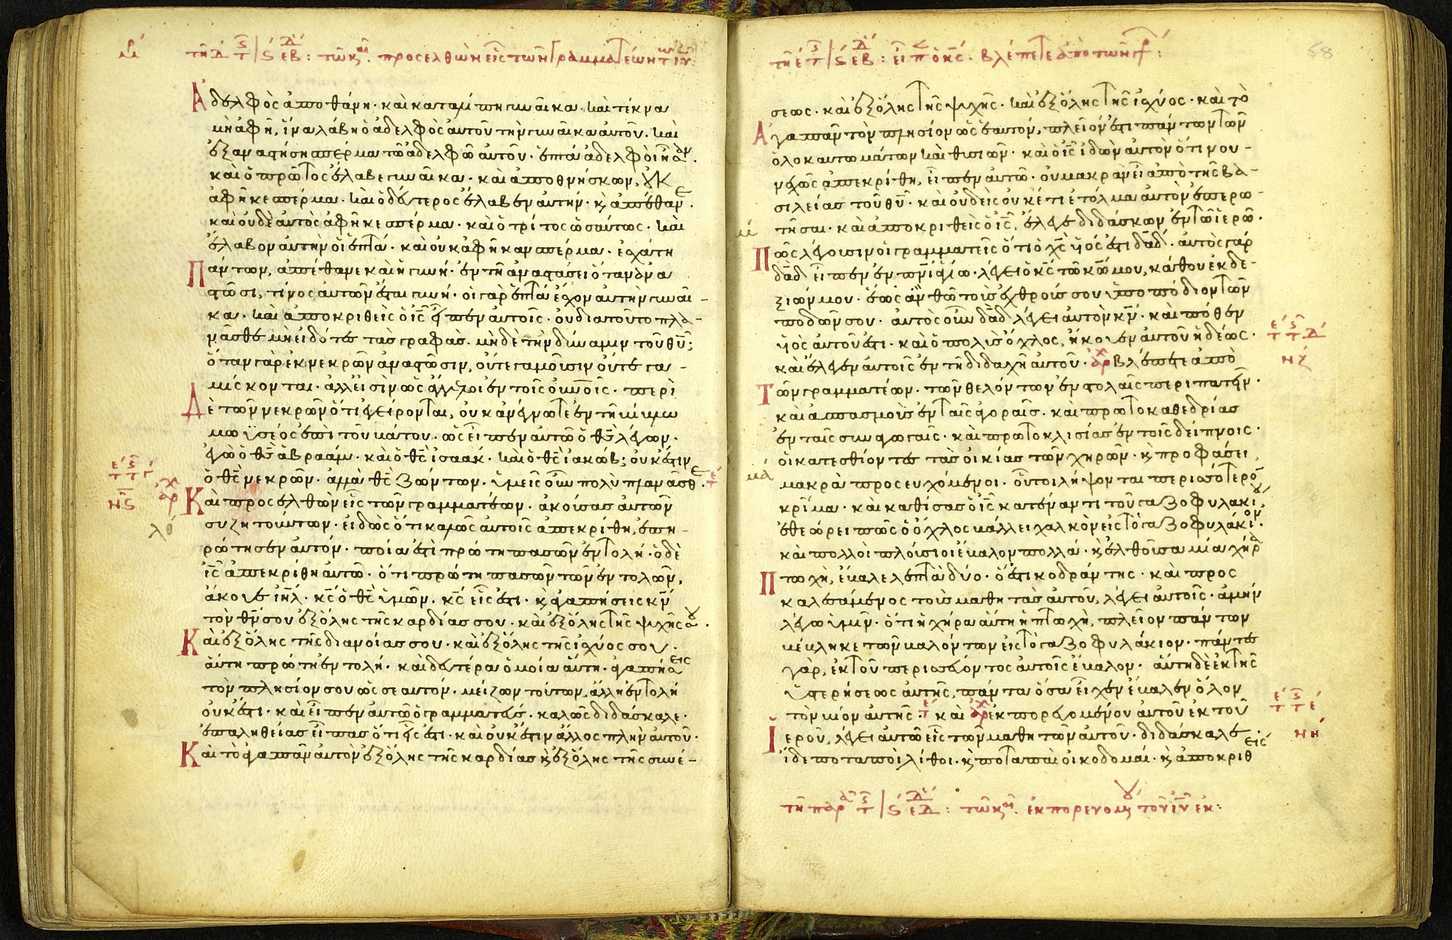 ἀδελφὸς ἀποθάνη· καὶ καταλίπη γυναῖκα· καὶ τέκνα
μὴ ἀφῆ, ἵνα λάβη ὁ ἀδελφὸς αὐτοῦ τὴν γυναῖκα αὐτοῦ· καὶ
ἐξαναστήση σπέρμα τῶ ἀδελφῶ αὐτοῦ· ἑπτὰ ἀδελφοὶ ἦσαν·
καὶ ὁ πρῶτος ἔλαβε γυναῖκα· καὶ ἀποθνήσκων, οὐκ
ἀφῆκε σπέρμα· καὶ ὁ δεύτερος ἔλαβεν αὐτήν· κ ἀπέθανε·
καὶ οὐδὲ αὐτὸς ἀφῆκε σπέρμα· καὶ ὁ τρίτος ὡσαύτως· καὶ
ἔλαβον αὐτὴν οἱ ἑπτά· καὶ οὐκ ἀφῆκαν σπέρμα· ἐσχάτη
πάντων, ἀπέθανε καὶ ἡ γυνή· ἐν τῆ ἀναστάσει ὅταν ἀνα
στῶσι, τίνος αὐτῶν ἔσται γυνή· οἱ γὰρ ἑπτὰ ἔσχον αὐτὴν γυναῖ-
κα· καὶ ἀποκριθεὶς ὁ ις εἶπεν αὐτοῖς· οὐ διατοῦτο πλα-
νᾶσθε μὴ εἰδότες τὰς γραφάς· μηδὲ τὴν δύναμιν τοῦ θυ;
ὅταν γὰρ ἐκ νεκρῶν ἀναστῶσιν, οὔτε γαμοῦσιν οὔτε γα-
μίσκονται· ἀλλ εἰσὶν ὡς ἄγγελοι ἐν τοῖς οὐνοῖς· περὶ
δὲ τῶν νεκρῶν ὅτι ἐγείρονται, οὐκ ἀνέγνωτε ἐν τῆ βίβλω
μωϋσέος ἐπὶ τοῦ βάτου· ὡς εἶπεν αὐτῶ ὁ θς λέγων·
ἐγὼ ὁ θς ἀβραάμ· καὶ ὁ θς ἰσαάκ· καὶ ὁ θς ἰακώβ; οὐκ ἔστιν
ὁ θς νεκρῶν· ἀλλὰ θς ζώντων· ὑμεῖς οὖν πολὺ πλανᾶσθε·
καὶ προσελθὼν εἷς τῶν γραμματέων· ἀκούσας αὐτῶν
συζητούντων· εἰδὼς ὅτι καλῶς αὐτοῖς ἀπεκρίθη, ἐπη-
ρώτησεν αὐτόν· ποία ἐστὶ πρώτη πασῶν ἐντολή· ὁ δὲ
ις ἀπεκρίθη αὐτῶ· ὅτι πρώτη πασῶν τῶν ἐντολῶν,
ἄκουε ιηλ· κς ὁ θς ὑμῶν· κς εἷς ἐστι· κ ἀγαπήσεις κν
τὸν θν σου ἐξ ὅλης τῆς καρδίας σου· καὶ ἐξ ὅλης τῆς ψυχῆς σου·
καὶ ἐξ ὅλης τῆς διανοίας σου· καὶ ἐξ ὅλης τῆς ἰσχύος σου·
αὕτη πρώτη ἐντολή· καὶ δευτέρα ὁμοία αὕτη· ἀγαπήσεις
τὸν πλησίον σου ὡς σεαυτόν· μείζων τούτων, ἄλλη ἐντολὴ
οὐκ ἔστι· καὶ εἶπεν αὐτῶ ὁ γραμματεύς· καλῶς διδάσκαλε·
ἐπαληθείας εἶπας ὅτι εἷς ἐστι· καὶ οὐκ ἔστιν ἄλλος πλὴν αὐτοῦ·
καὶ τὸ ἀγαπᾶν αὐτὸν ἐξ ὅλης τῆς καρδίας κ ἐξ ὅλης τῆς συνέ-
σεως· καὶ ἐξ ὅλης τῆς ψυχῆς· καὶ ἐξ ὅλης τῆς ἰσχύος· καὶ τὸ
ἀγαπᾶν τὸν πλησίον ὡς ἑαυτόν, πλεῖον ἐστι πάντων τῶν
ὁλοκαυτωμάτων καὶ θυσιῶν· καὶ ὁ ις ἰδὼν αὐτὸν ὅτι νου-
νεχῶς ἀπεκρίθη, εἶπεν αὐτῶ· οὐ μακρὰν εἶ ἀπὸ τῆς βα-
σιλείας τοῦ θυ· καὶ οὐδεὶς οὐκέτι ἐτόλμα αὐτὸν ἐπερω-
τῆσαι· καὶ ἀποκριθεὶς ὁ ις, ἔλεγε διδάσκων ἐν τῶ ἱερῶ·
πῶς λέγουσιν οἱ γραμματεῖς ὅτι ὁ χς υός ἐστι δαδ· αὐτὸς γὰρ
δαδ εἶπεν ἐν πνι ἁγίω· λέγει ὁ κς τῶ κω μου, κάθου ἐκ δε-
ξιῶν μου· ἕως ἂν θῶ τοὺς ἐχθρούς σου ὑποπόδιον τῶν
ποδῶν σου· αὐτὸς οὖν δαδ λέγει αὐτὸν κν· καὶ πόθεν
υός αὐτοῦ ἐστι· καὶ ὁ πολὺς ὄχλος, ἤκουεν αὐτοῦ ἡδέως·
καὶ ἔλεγεν αὐτοῖς ἐν τῆ διδαχῆ αὐτοῦ· βλέπετε ἀπὸ
τῶν γραμματέων· τῶν θελόντων ἐν στολαῖς περιπατεῖν·
καὶ ἀσπασμοὺς ἐν ταῖς ἀγοραῖς· καὶ πρωτοκαθεδρίας
ἐν ταῖς συναγωγαῖς· καὶ πρωτοκλισίας ἐν τοῖς δείπνοις·
οἱ κατεσθίοντες τὰς οἰκίας τῶν χηρῶν· κ προφάσει
μακρὰ προσευχόμενοι· οὗτοι λήψονται περισσότερον
κρίμα· καὶ καθίσας ὁ ις κατέναντι τοῦ γαζοφυλακίου
ἐθεώρει πῶς ὁ ὄχλος βάλλει χαλκὸν εἰς τὸ γαζοφυλάκιον·
καὶ πολλοὶ πλούσιοι ἔβαλον πολλά· κ ἐλθοῦσα μία χήρα
πτωχὴ, ἔβαλε λεπτὰ δύο· ὅ ἐστι κοδράντης· καὶ προς
καλεσάμενος τοὺς μαθητὰς αὐτοῦ, λέγει αὐτοῖς· ἀμὴν
λέγω ὑμῖν· ὅτι ἡ χήρα αὕτη ἡ πτωχὴ, πλεῖον πάντων
βέβληκε τῶν βαλόντων εἰς τὸ γαζοφυλάκιον· πάντες
γὰρ, ἐκ τοῦ περισσεύοντος αὐτοῖς ἔβαλον· αὕτη δὲ ἐκ τῆς
ὑστερήσεως αὐτῆς, πάντα ὅσα εἶχεν ἔβαλεν ὅλον
τὸν βίον αὐτῆς· καὶ ἐκπορευομένου αὐτοῦ ἐκ τοῦ
ἱεροῦ, λέγει αὐτῶ εἷς τῶν μαθητῶν αὐτοῦ· διδάσκαλε
ἴδε ποταποὶ λίθοι· κ ποταπαὶ οἰκοδομαί· κ ἀποκριθεὶς